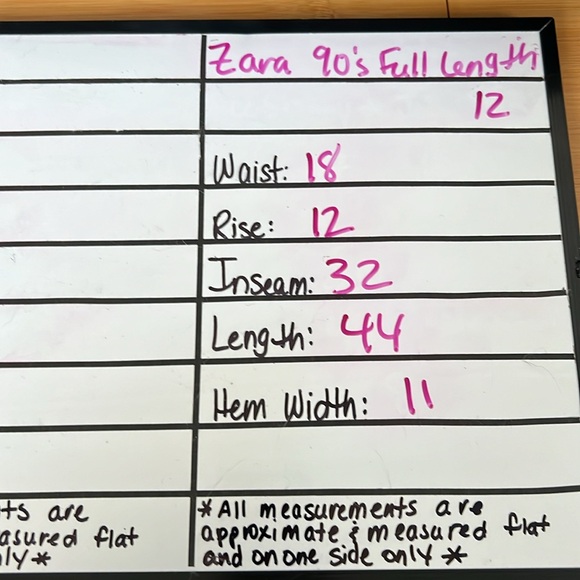 Zara 90's Full Length
12
Waist: 18
Rise: 12
Inseam: 32
Length: 44
Hem Width: 11
*All measurements are
approximate & measured flat
and on one side only *
ts are
asured flat
ly *